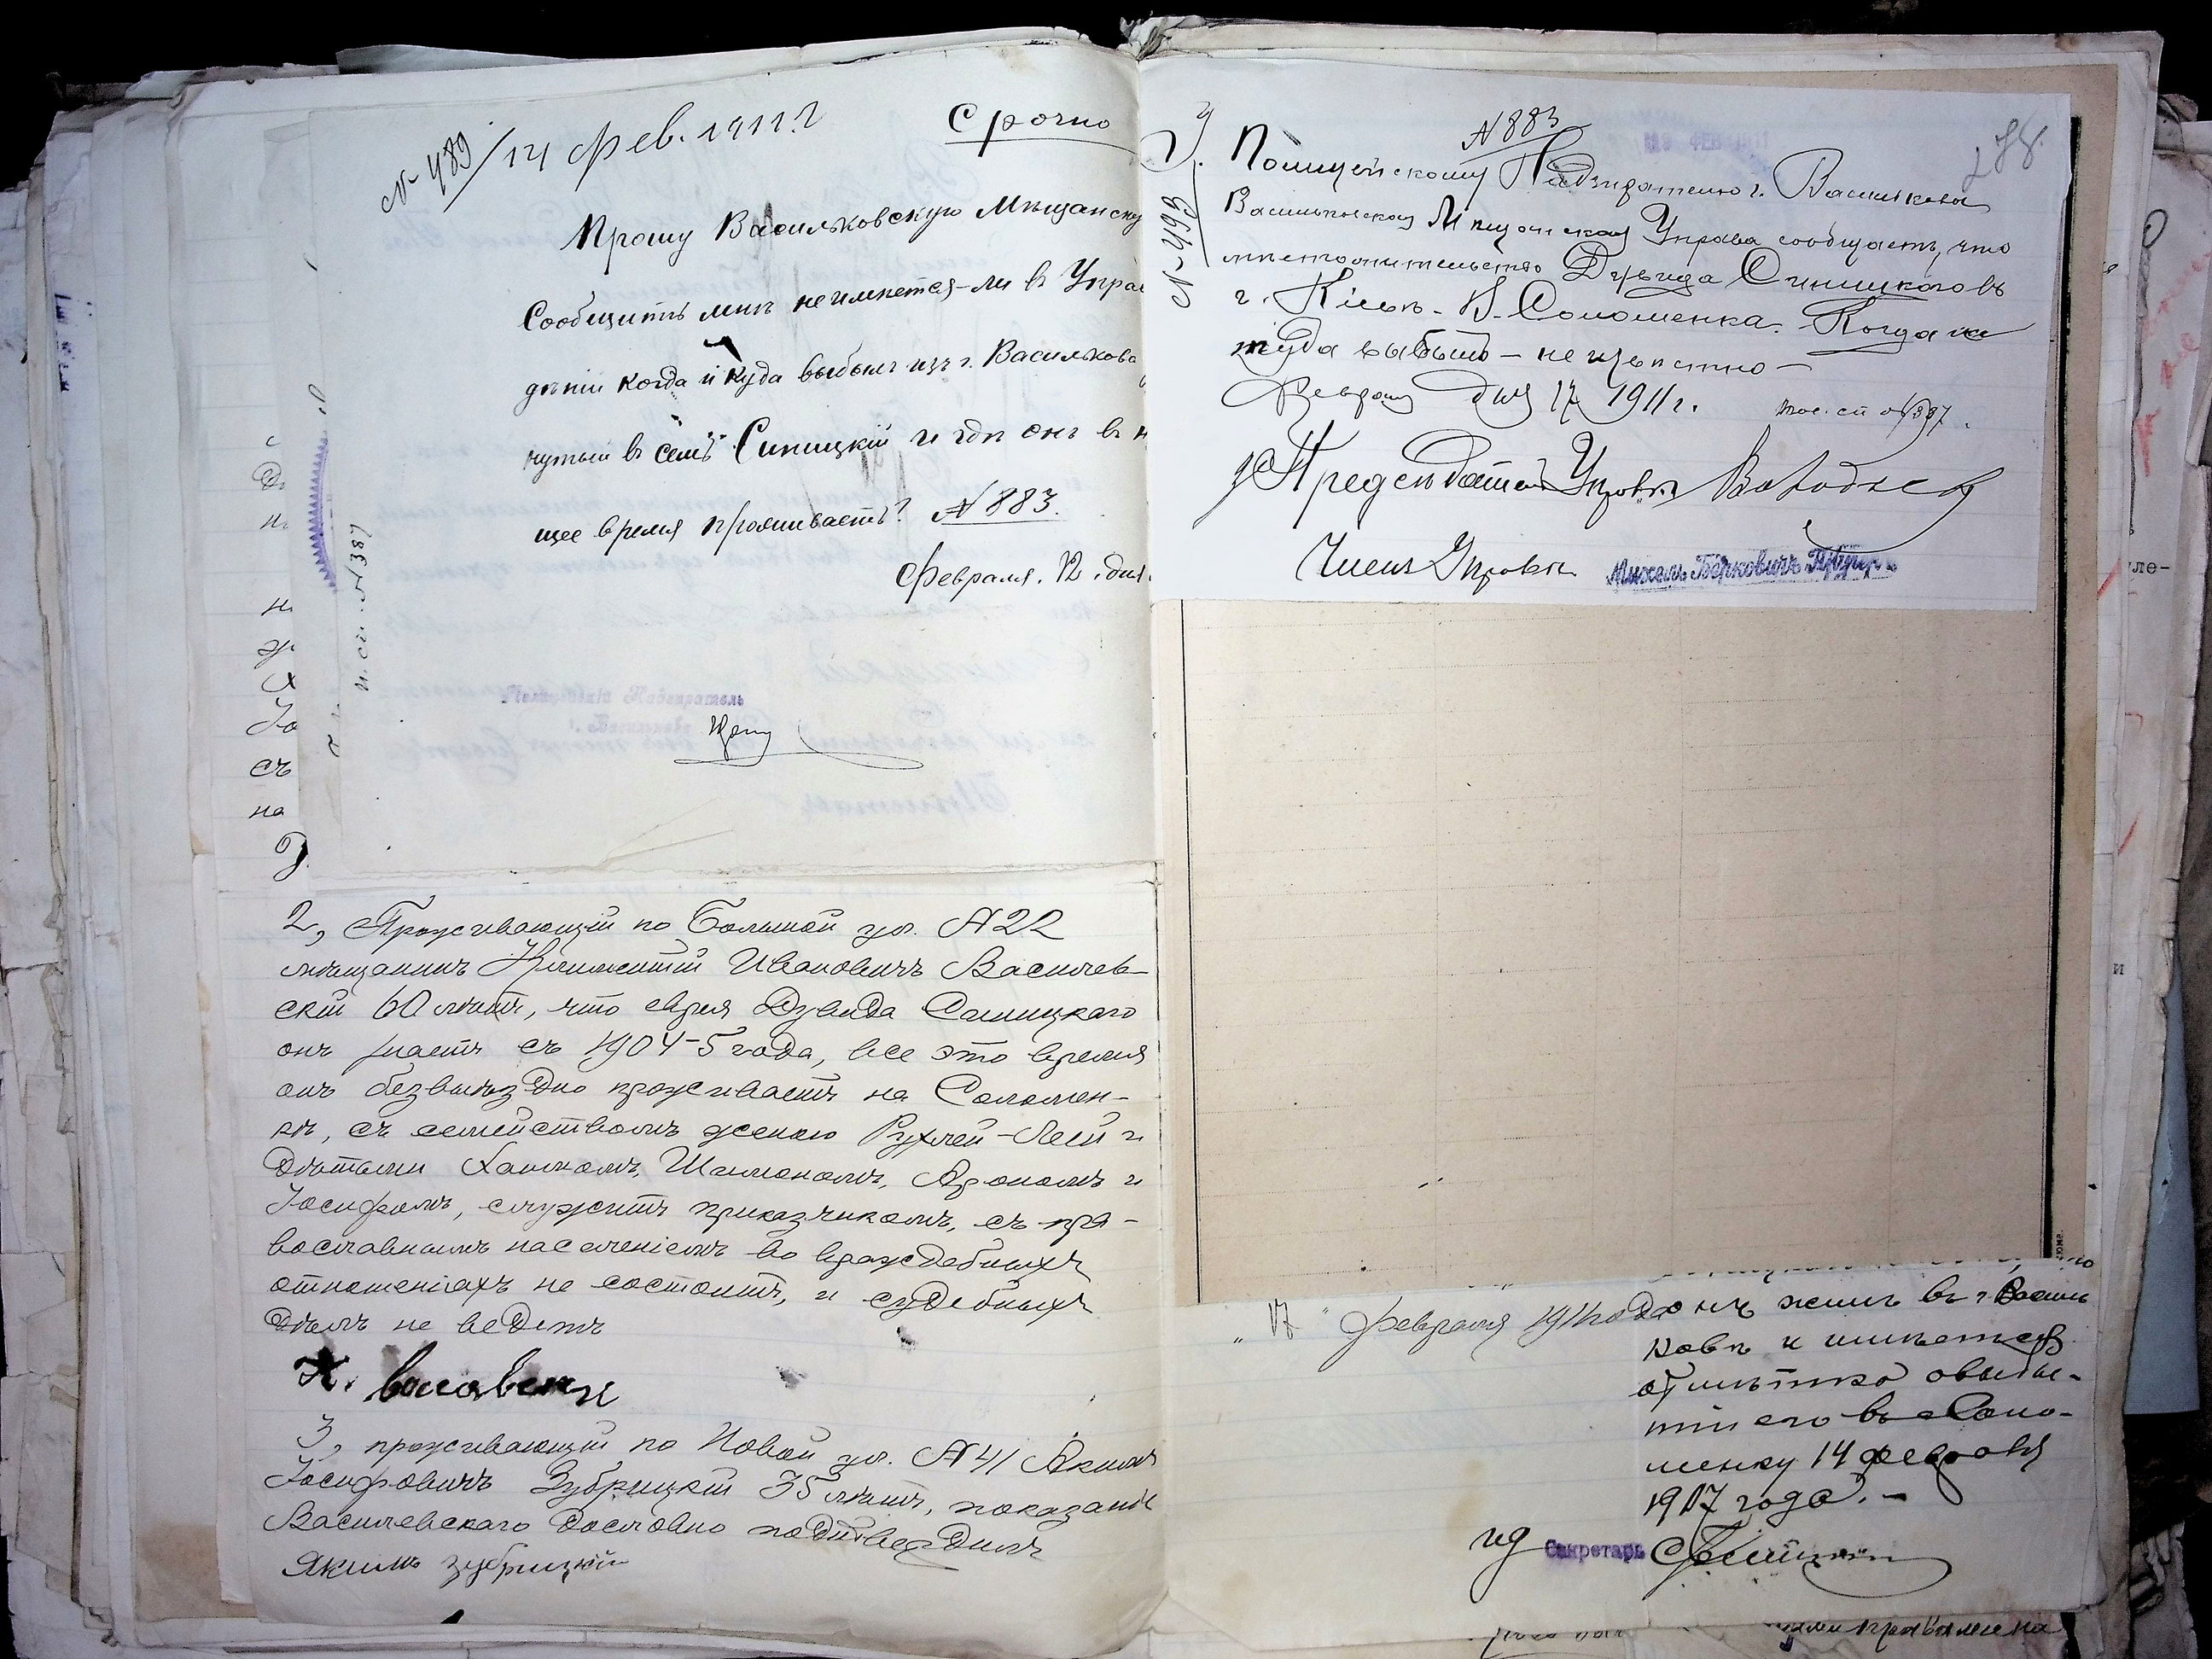 № 489/14 фев. 1911 г
Срочно
Прошу Васильковскую Мѣщанску
Сообщить мнѣ не имѣется-ли въ Упра
дѣнiи когда и куда выбылъ изъ г. Василькова
нутый въ семъ Синицкiй и гдѣ онъ въ н
щее время проживаетъ? № 883.
Февраля. 12 дня.
Полицейскiй Надзиратель
г. Василькова
2, Проживающiй по Большой ул. № 22
мѣщанинъ Климентiй Ивановичъ Василев-
скiй 60 лѣтъ, что еврея Дувида Синицкаго
онъ знаетъ съ 1904-5 года, все это время
онъ безвыѣздно проживаетъ на Соломен-
кѣ, съ семействомъ женою Рухлей-Леей и
дѣтьми Хаимомъ, Шлиономъ, Арономъ и
Iосифомъ, служитъ приказчикомъ, съ пра-
вославнымъ населенiемъ во враждебныхъ
отношенiяхъ не состоитъ, и судебныхъ
дѣлъ не ведетъ
3, проживающiй по Новой ул. № 41 Якимъ
Iосифовичъ Зубрицкiй 35 лѣтъ, показанiе
Василевскаго дословно подтвердилъ
Якимъ Зубрицкiй
№ 883
278.
№ 493
Полицейскому Надзирателю г. Василькова
Васильковская Мѣщанская Управа сообщаетъ, что
мѣстожительство Дувида Синицкаго въ
г. Кiевѣ. В. Соломенка. Когда же
туда выбылъ – не извѣстно –
Февраля дня 17 1911 г.
Предсѣдатель Управы
Членъ Управы Михель Берковичъ
„17" Февраля 1911 года онъ жилъ въ г. Василь
ковѣ и имѣется
отмѣтка о выбы-
тiи его въ Соло-
менку 14 февраля
1907 года. –
ид Секретарь